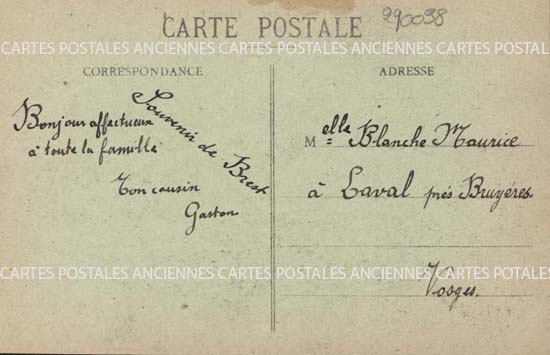 CARTE POSTALE
290098
CARTES POSTALES ANCIENNES CARTES POSTALES ANCIENNES CARTES POSTALES
CORRESPONDANCE
ADRESSE
Souvenir de Brest
Bonjour affectueux
à toute la famille
Ton cousin
Gaston
Melle Blanche Maurice
à Laval près Bruyères.
CARTES POSTALES ANCIENNES CARTES POSTALES ANCIENNES CARTES POTALES
Vosges.